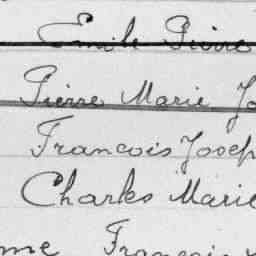 Emile Pierre
Pierre Marie Jo
Francois Josep
Charles Marie
me Francois